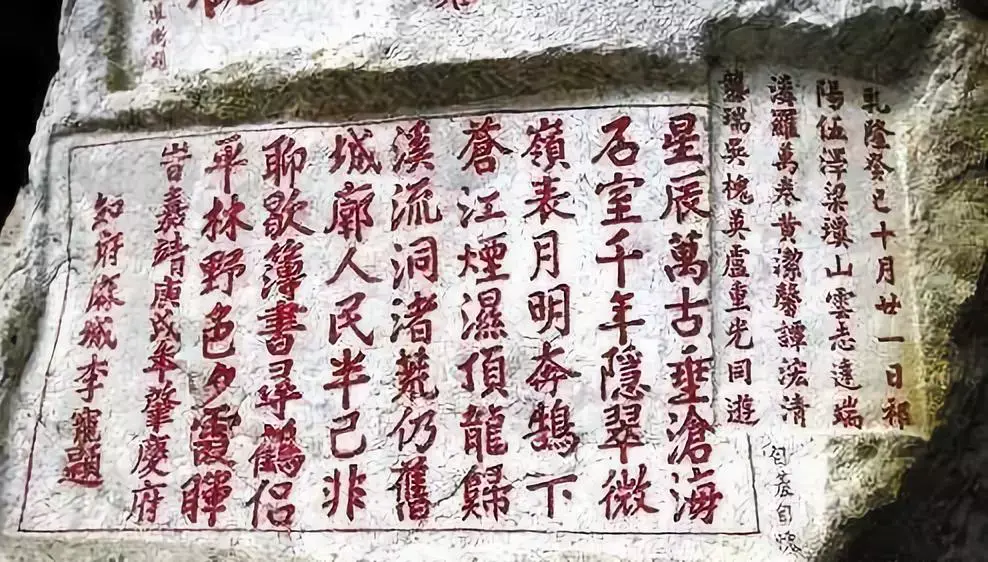 乹隆癸巳十月廿一日祁
陽伍澤梁瓊山雲志達端
溪羅萬卷黃潔馨譚浤清
龔瑞吳槐英盧重光同遊
星辰萬古垂滄海
石室千年隱翠微
嶺表月明奔鵠下
蒼江煙濕頂龍歸
溪流洞渚荒仍舊
城廓人民半已非
聊歇簿書尋鶴侶
平林野色夕霞暉
旹嘉靖庚戌年肇慶府
知府麻城李寵題